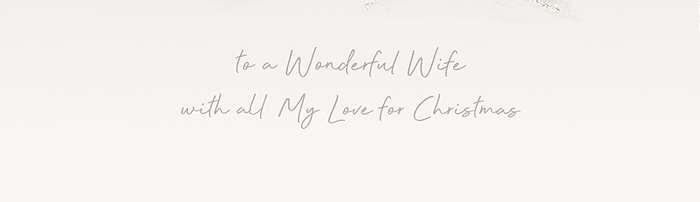 to a Wonderful Wife
with all My Love for Christmas